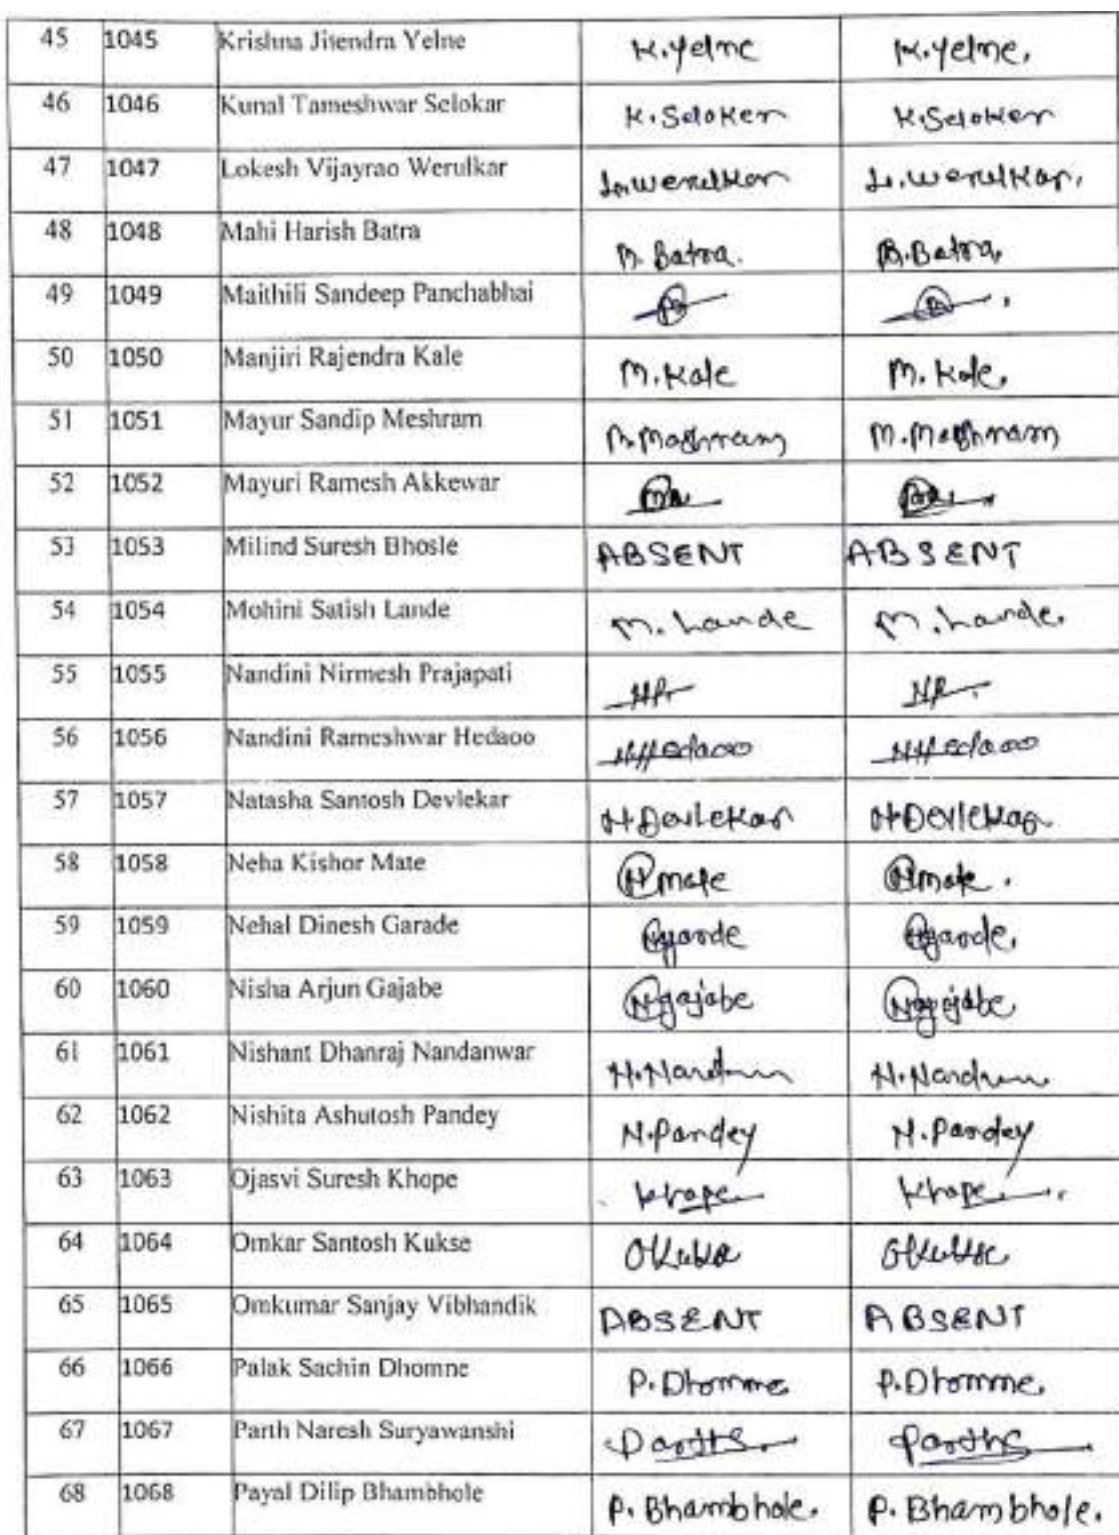 45 1045 Krishna Jitendra Yelne K.Yelne K.Yelne.
46 1046 Kunal Tameshwar Selokar K.Seloker K.Seloker
47 1047 Lokesh Vijayrao Werulkar L.Werulkar L.Werulkar.
48 1048 Mahi Harish Batra M.Batra. M.Batra.
49 1049 Maithili Sandeep Panchabhai
50 1050 Manjiri Rajendra Kale M.Kale M.Kale.
51 1051 Mayur Sandip Meshram M.Meshram M.Meshram
52 1052 Mayuri Ramesh Akkewar
53 1053 Milind Suresh Bhosle ABSENT ABSENT
54 1054 Mohini Satish Lande M.Lande M.Lande.
55 1055 Nandini Nirmesh Prajapati
56 1056 Nandini Rameshwar Hedaoo NHedaoo NHedaoo
57 1057 Natasha Santosh Devlekar N.Devlekar N.Devlekar
58 1058 Neha Kishor Mate Nmate Nmate.
59 1059 Nehal Dinesh Garade
60 1060 Nisha Arjun Gajabe Ngajabe Ngajabe
61 1061 Nishant Dhanraj Nandanwar
62 1062 Nishita Ashutosh Pandey N.Pandey N.Pandey
63 1063 Ojasvi Suresh Khope Khope Khope
64 1064 Omkar Santosh Kukse
65 1065 Omkumar Sanjay Vibhandik ABSENT ABSENT
66 1066 Palak Sachin Dhomne P.Dhomne P.Dhomne.
67 1067 Parth Naresh Suryawanshi ParthS. ParthS
68 1068 Payal Dilip Bhambhole P.Bhambhole. P.Bhambhole.